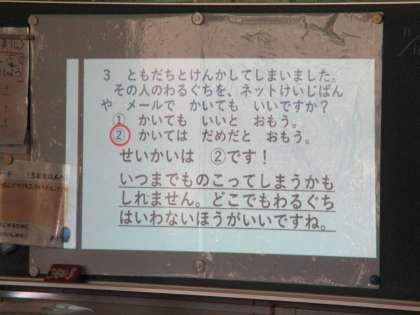 3 ともだちとけんかしてしまいました。
その人のわるぐちを、ネットけいじばん
や メールで かいても いいですか?
① かいても いいと おもう。
② かいては だめだと おもう。
せいかいは ②です!
いつまでものこってしまうかも
しれません。どこでもわるぐち
はいわないほうがいいですね。